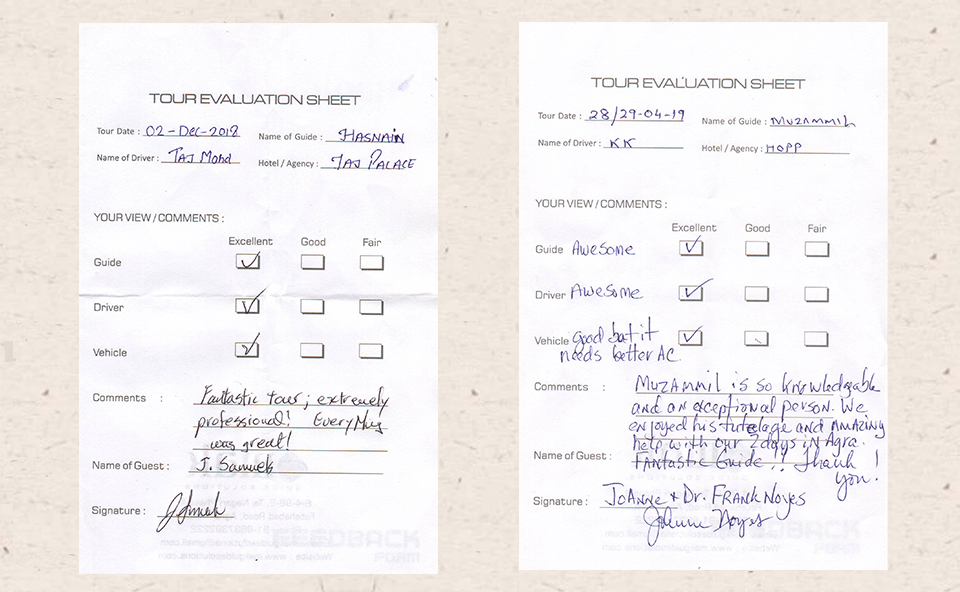 TOUR EVALUATION SHEET
Tour Date : 02-Dec-2018 Name of Guide : HASNAIN
Name of Driver : TAJ Mohd Hotel / Agency : TAJ PALACE
YOUR VIEW / COMMENTS :
Excellent Good Fair
Guide
Driver
Vehicle
Comments : Fantastic tour; extremely
professional! Everything
was great!
Name of Guest : J. Samuels
Signature :
TOUR EVALUATION SHEET
Tour Date : 28/29-04-19 Name of Guide : MUZAMMIL
Name of Driver : KK Hotel / Agency : HOPP
YOUR VIEW / COMMENTS :
Excellent Good Fair
Guide AWESOME
Driver AWESOME
Vehicle good but it
needs better AC.
Comments : MUZAMMIL is so knowledgable
and an exceptional person. We
enjoyed his tutelage and AMAZING
help with our 2 days in Agra.
Name of Guest : FANTASTIC Guide!! Thank
you!
Signature : JOANNE + Dr. FRANK NOYES
Johnne Noyes